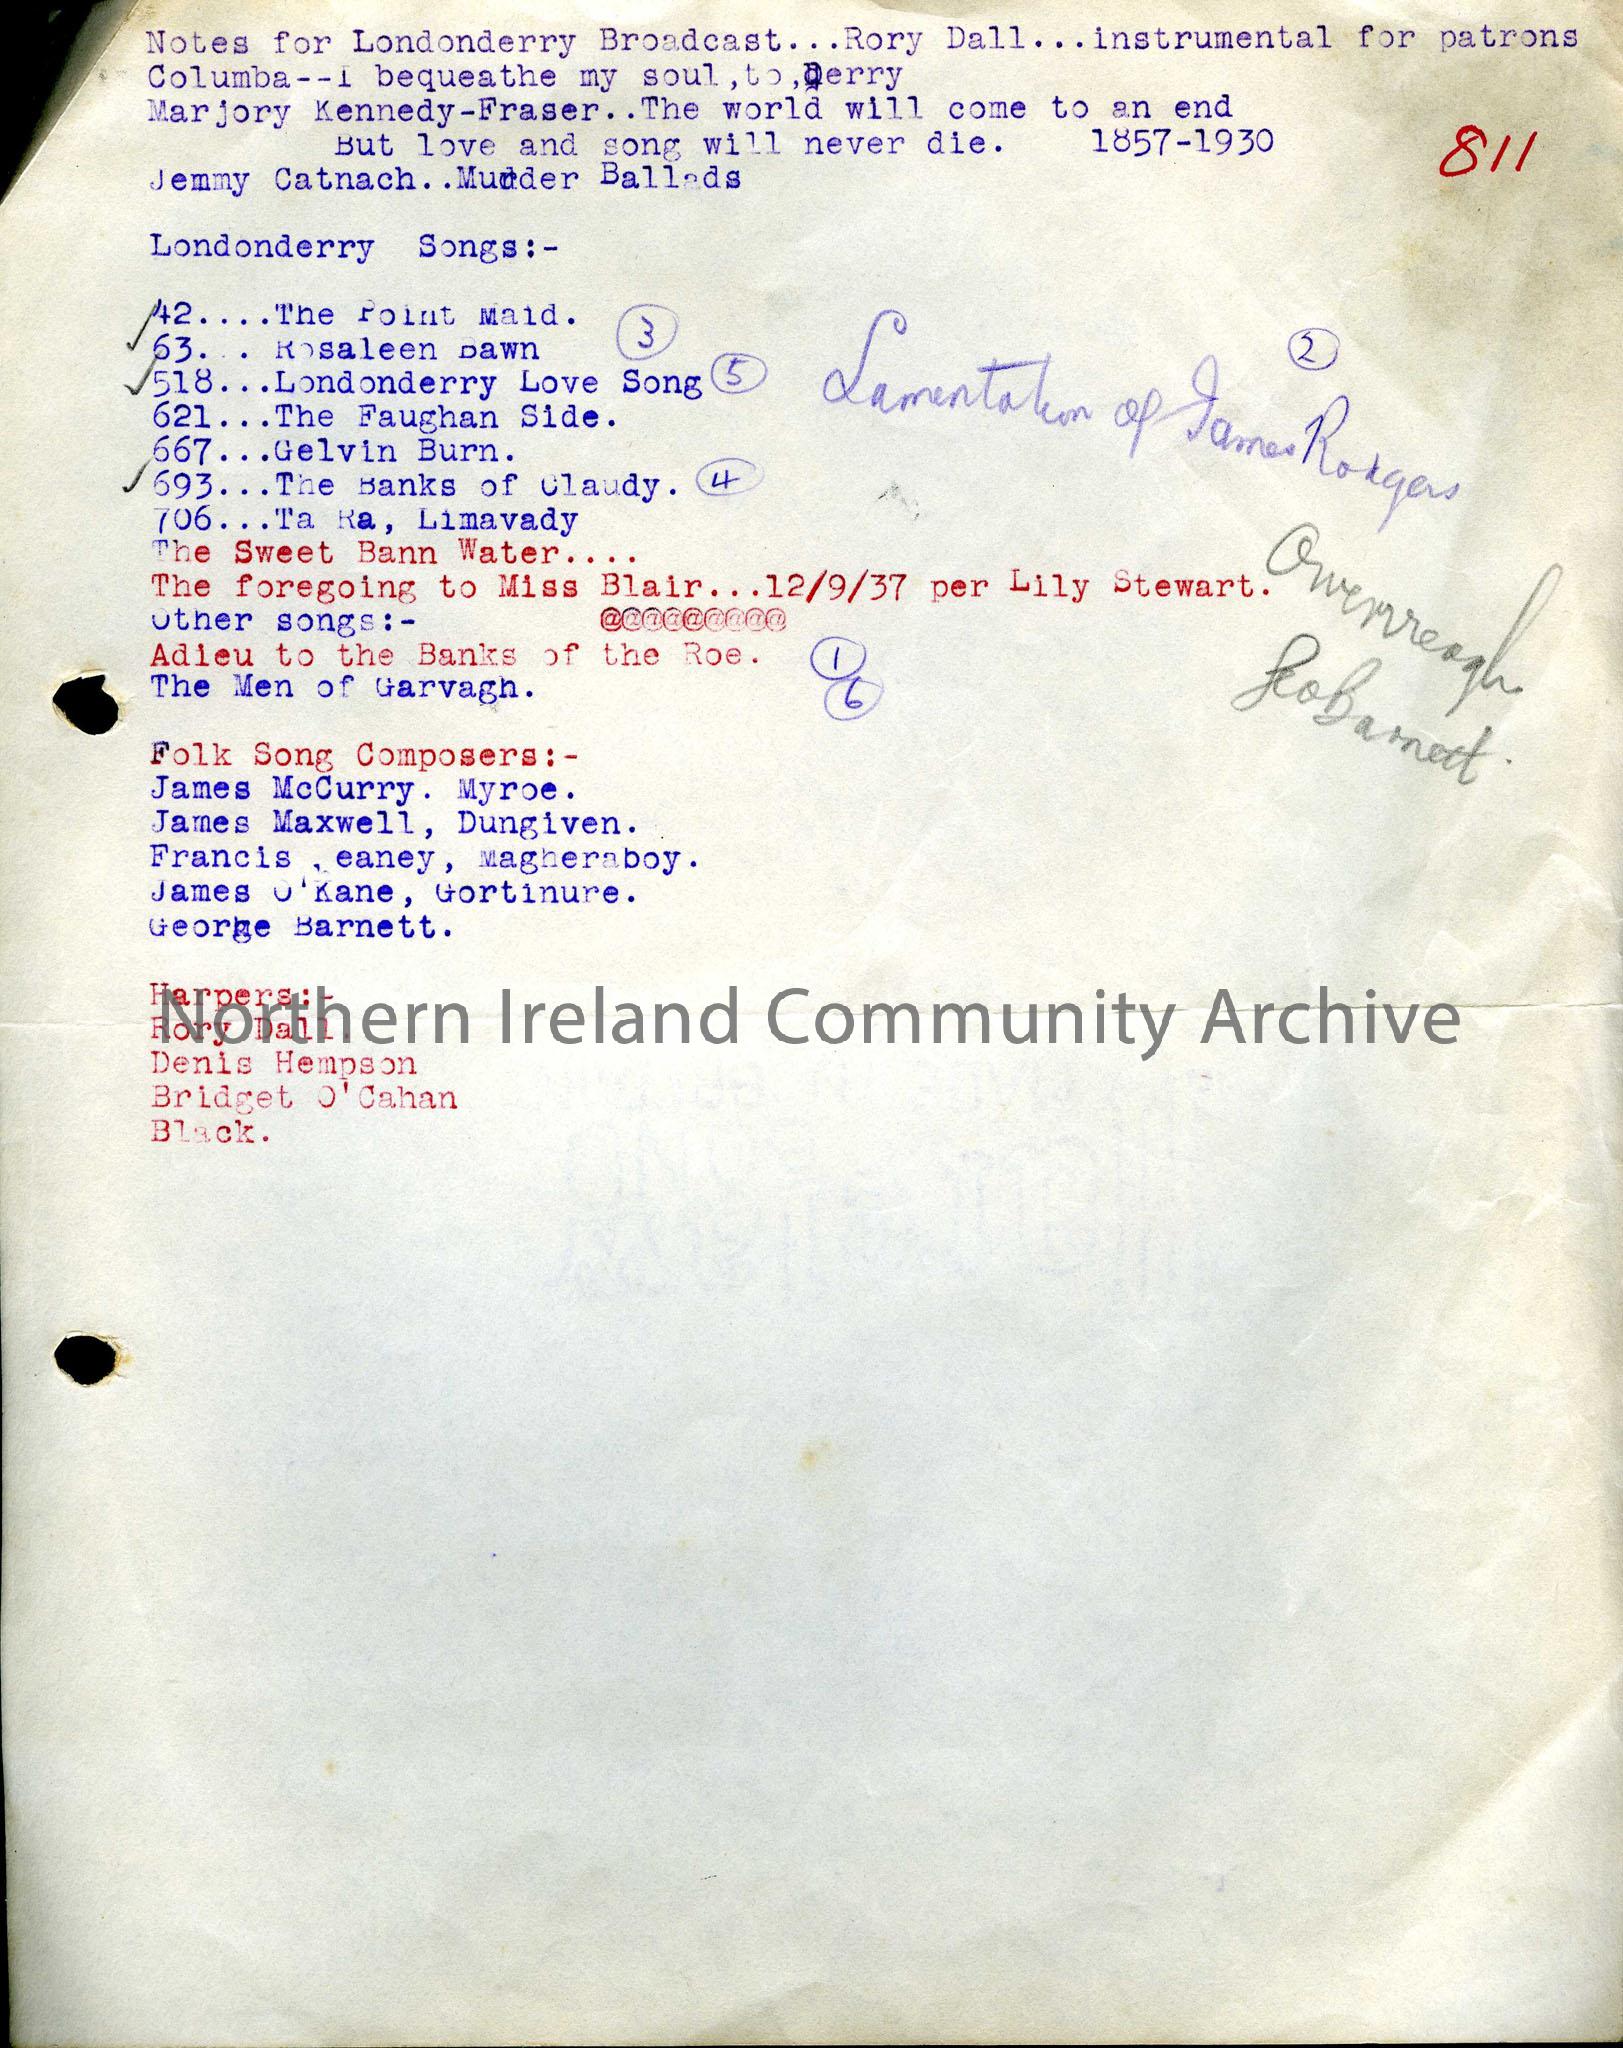 Notes for Londonderry Broadcast...Rory Dall...instrumental for patrons
Columba--I bequeathe my soul,to,Derry
Marjory Kennedy-Fraser..The world will come to an end
But love and song will never die. 1857-1930
811
Jemmy Catnach..Murder Ballads
Londonderry Songs:-
42....The Point Maid.
63... Rosaleen Bawn 3
518...Londonderry Love Song 5
Lamentation of James Rodgers 2
621...The Faughan Side.
667...Gelvin Burn.
693...The Banks of Claudy. 4
706...Ta Ra, Limavady
The Sweet Bann Water....
The foregoing to Miss Blair...12/9/37 per Lily Stewart.
Owenreagh
Geo Barnett.
Other songs:- @@@@@@@@@
Adieu to the Banks of the Roe. 1
The Men of Garvagh. 6
Folk Song Composers:-
James McCurry. Myroe.
James Maxwell, Dungiven.
Francis eaney, Magheraboy.
James O'Kane, Gortinure.
George Barnett.
Harpers:-
Northern Ireland Community Archive
Rory Dall.
Denis Hempson
Bridget O'Cahan
Black.